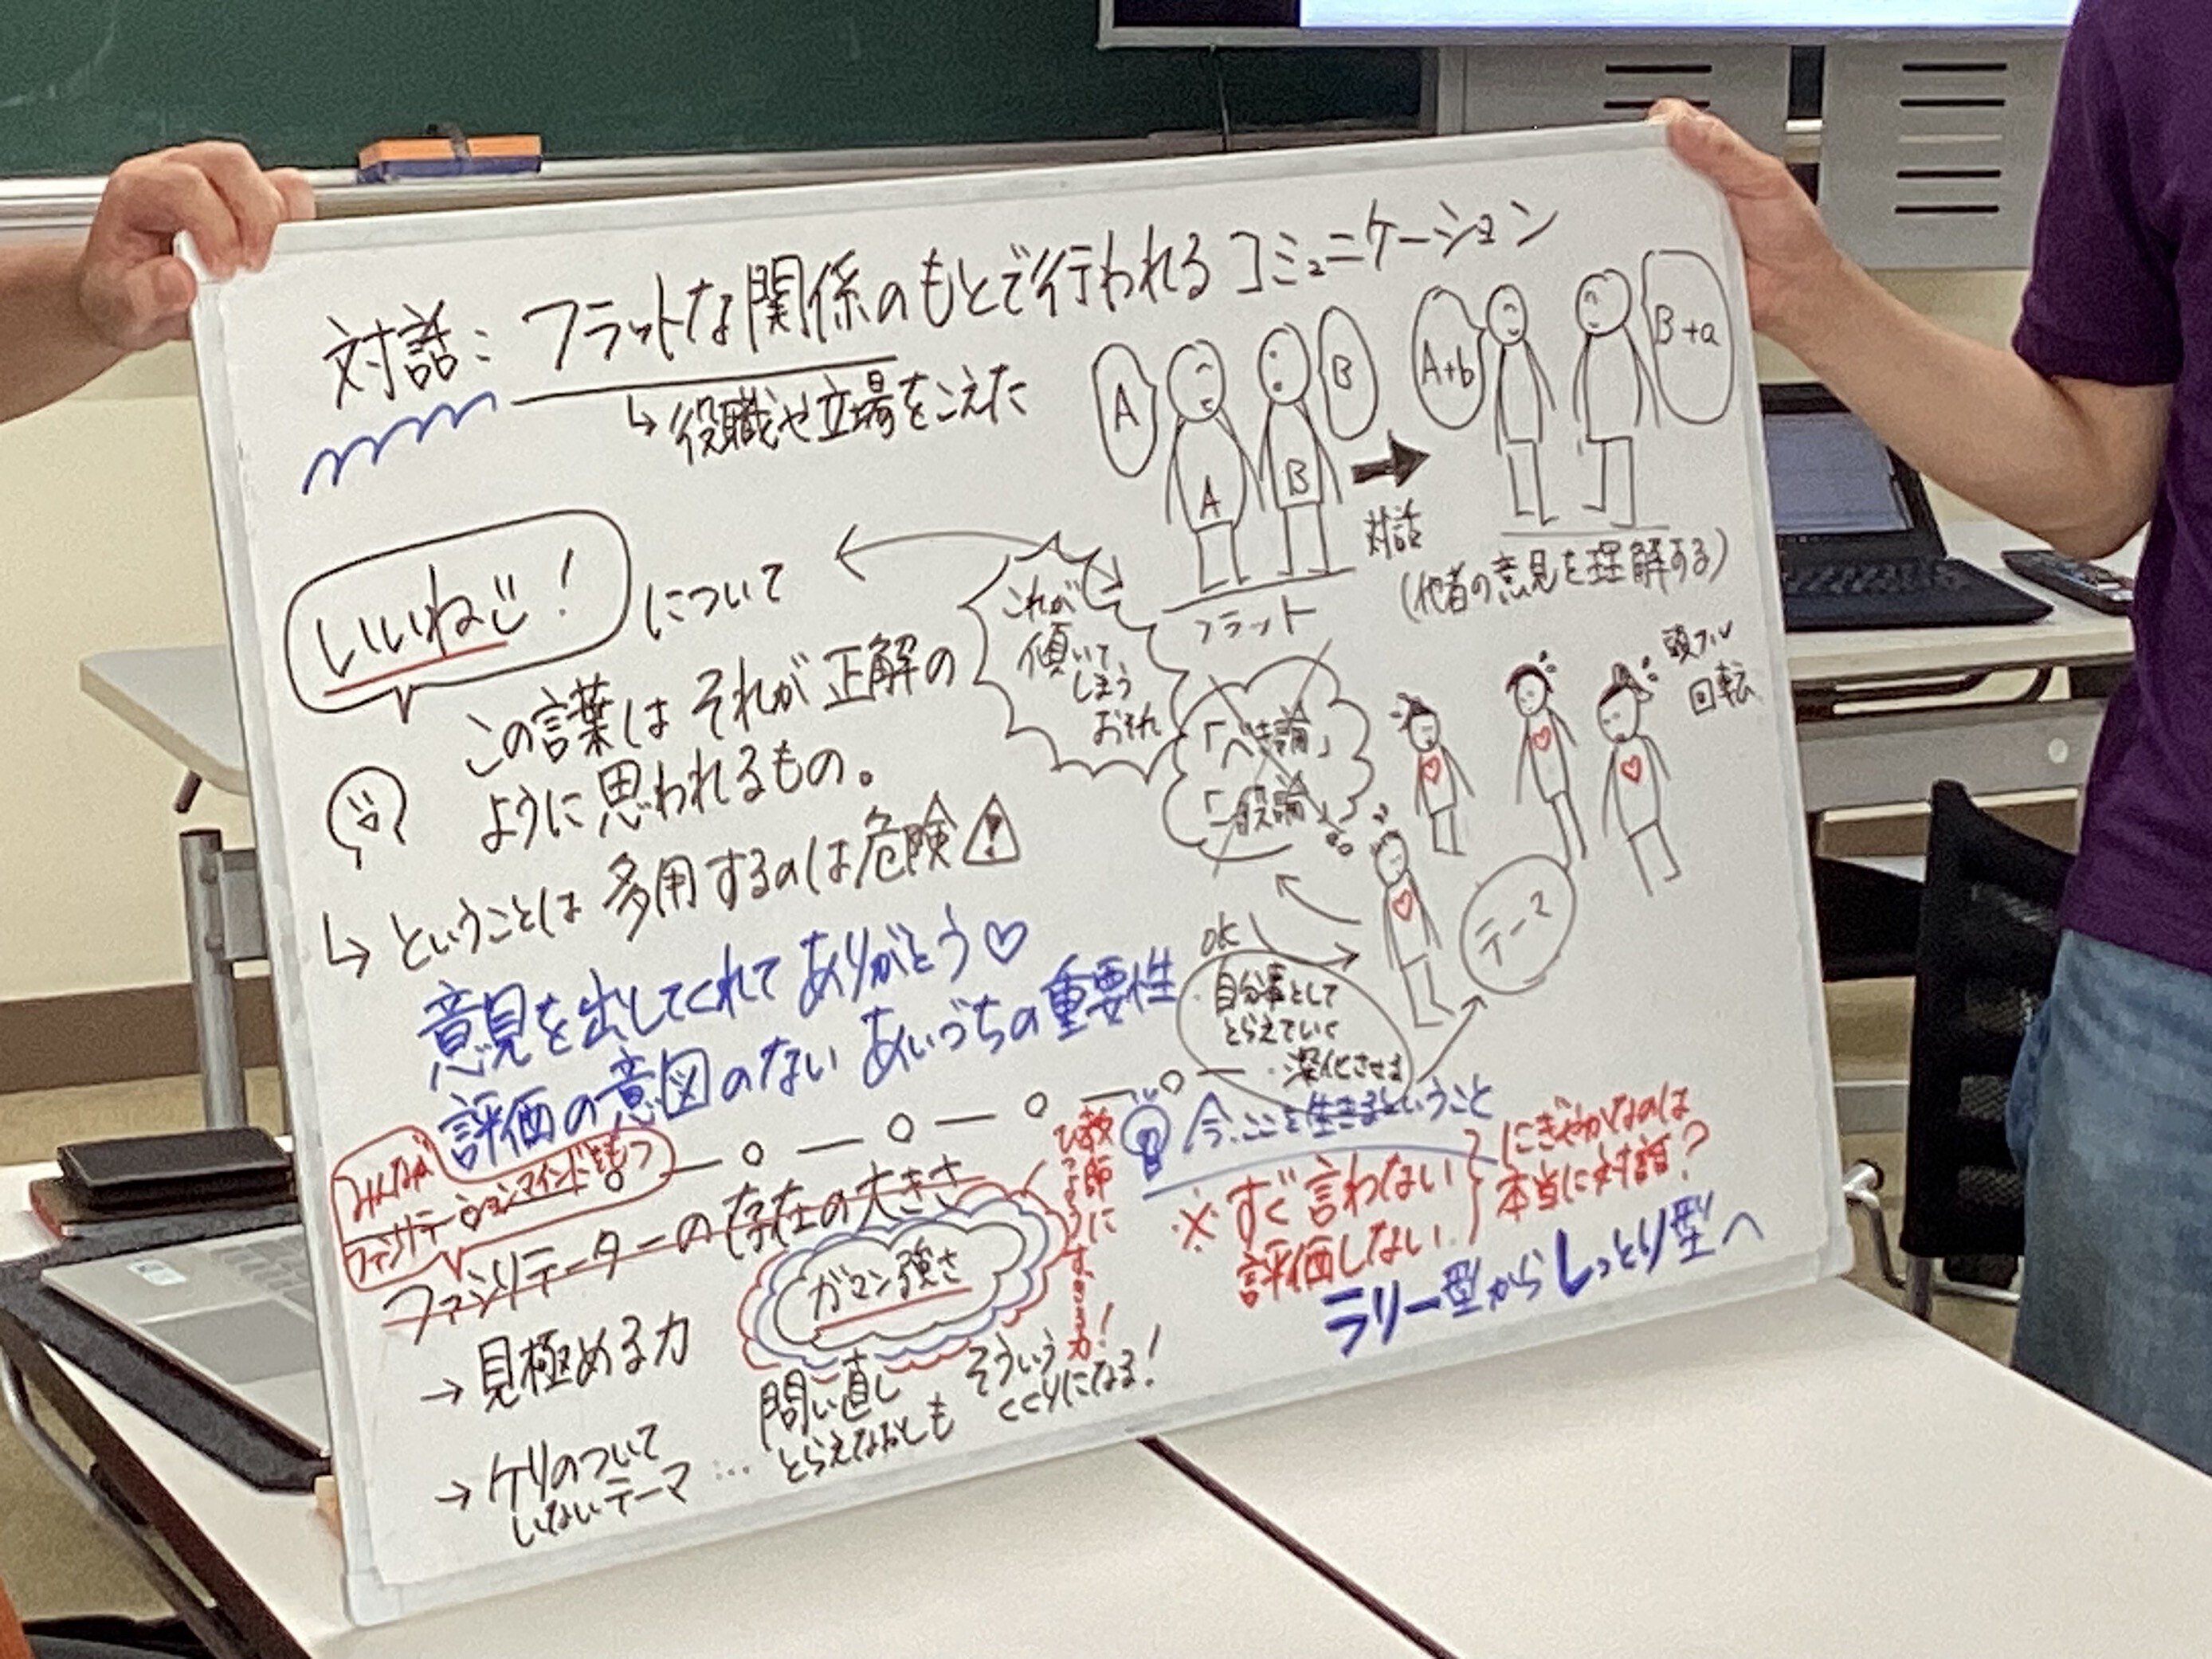 対話：フラットな関係のもとで行われるコミュニケーション
↳役職や立場をこえた
A
A
B
B
フラット
対話
A+b
B+a
(他者の意見を理解する)
いいねぇ！について
これが
傾いて
しまう
おそれ
この言葉はそれが正解の
ように思われるもの。
↳ということは多用するのは危険
意見を出してくれてありがとう♡
評価の意図のないあいづちの重要性
「べき論」
「一般論」
頭フル
回転
テーマ
OK
・自分事として
とらえていく
・深化させる
今、ここを生きるということ
※すぐ言わない
評価しない
にぎやかなのは
本当に対話？
ラリー型からしっとり型へ
みんなが
ファシリテーションマインドをもつ
ファシリテーターの存在の大きさ
→見極める力
ガマン強さ
教師に
ひつような
力！
→ケリのついて
いないテーマ…
問い直し
とらえなおしも
そういう
くくりになる！